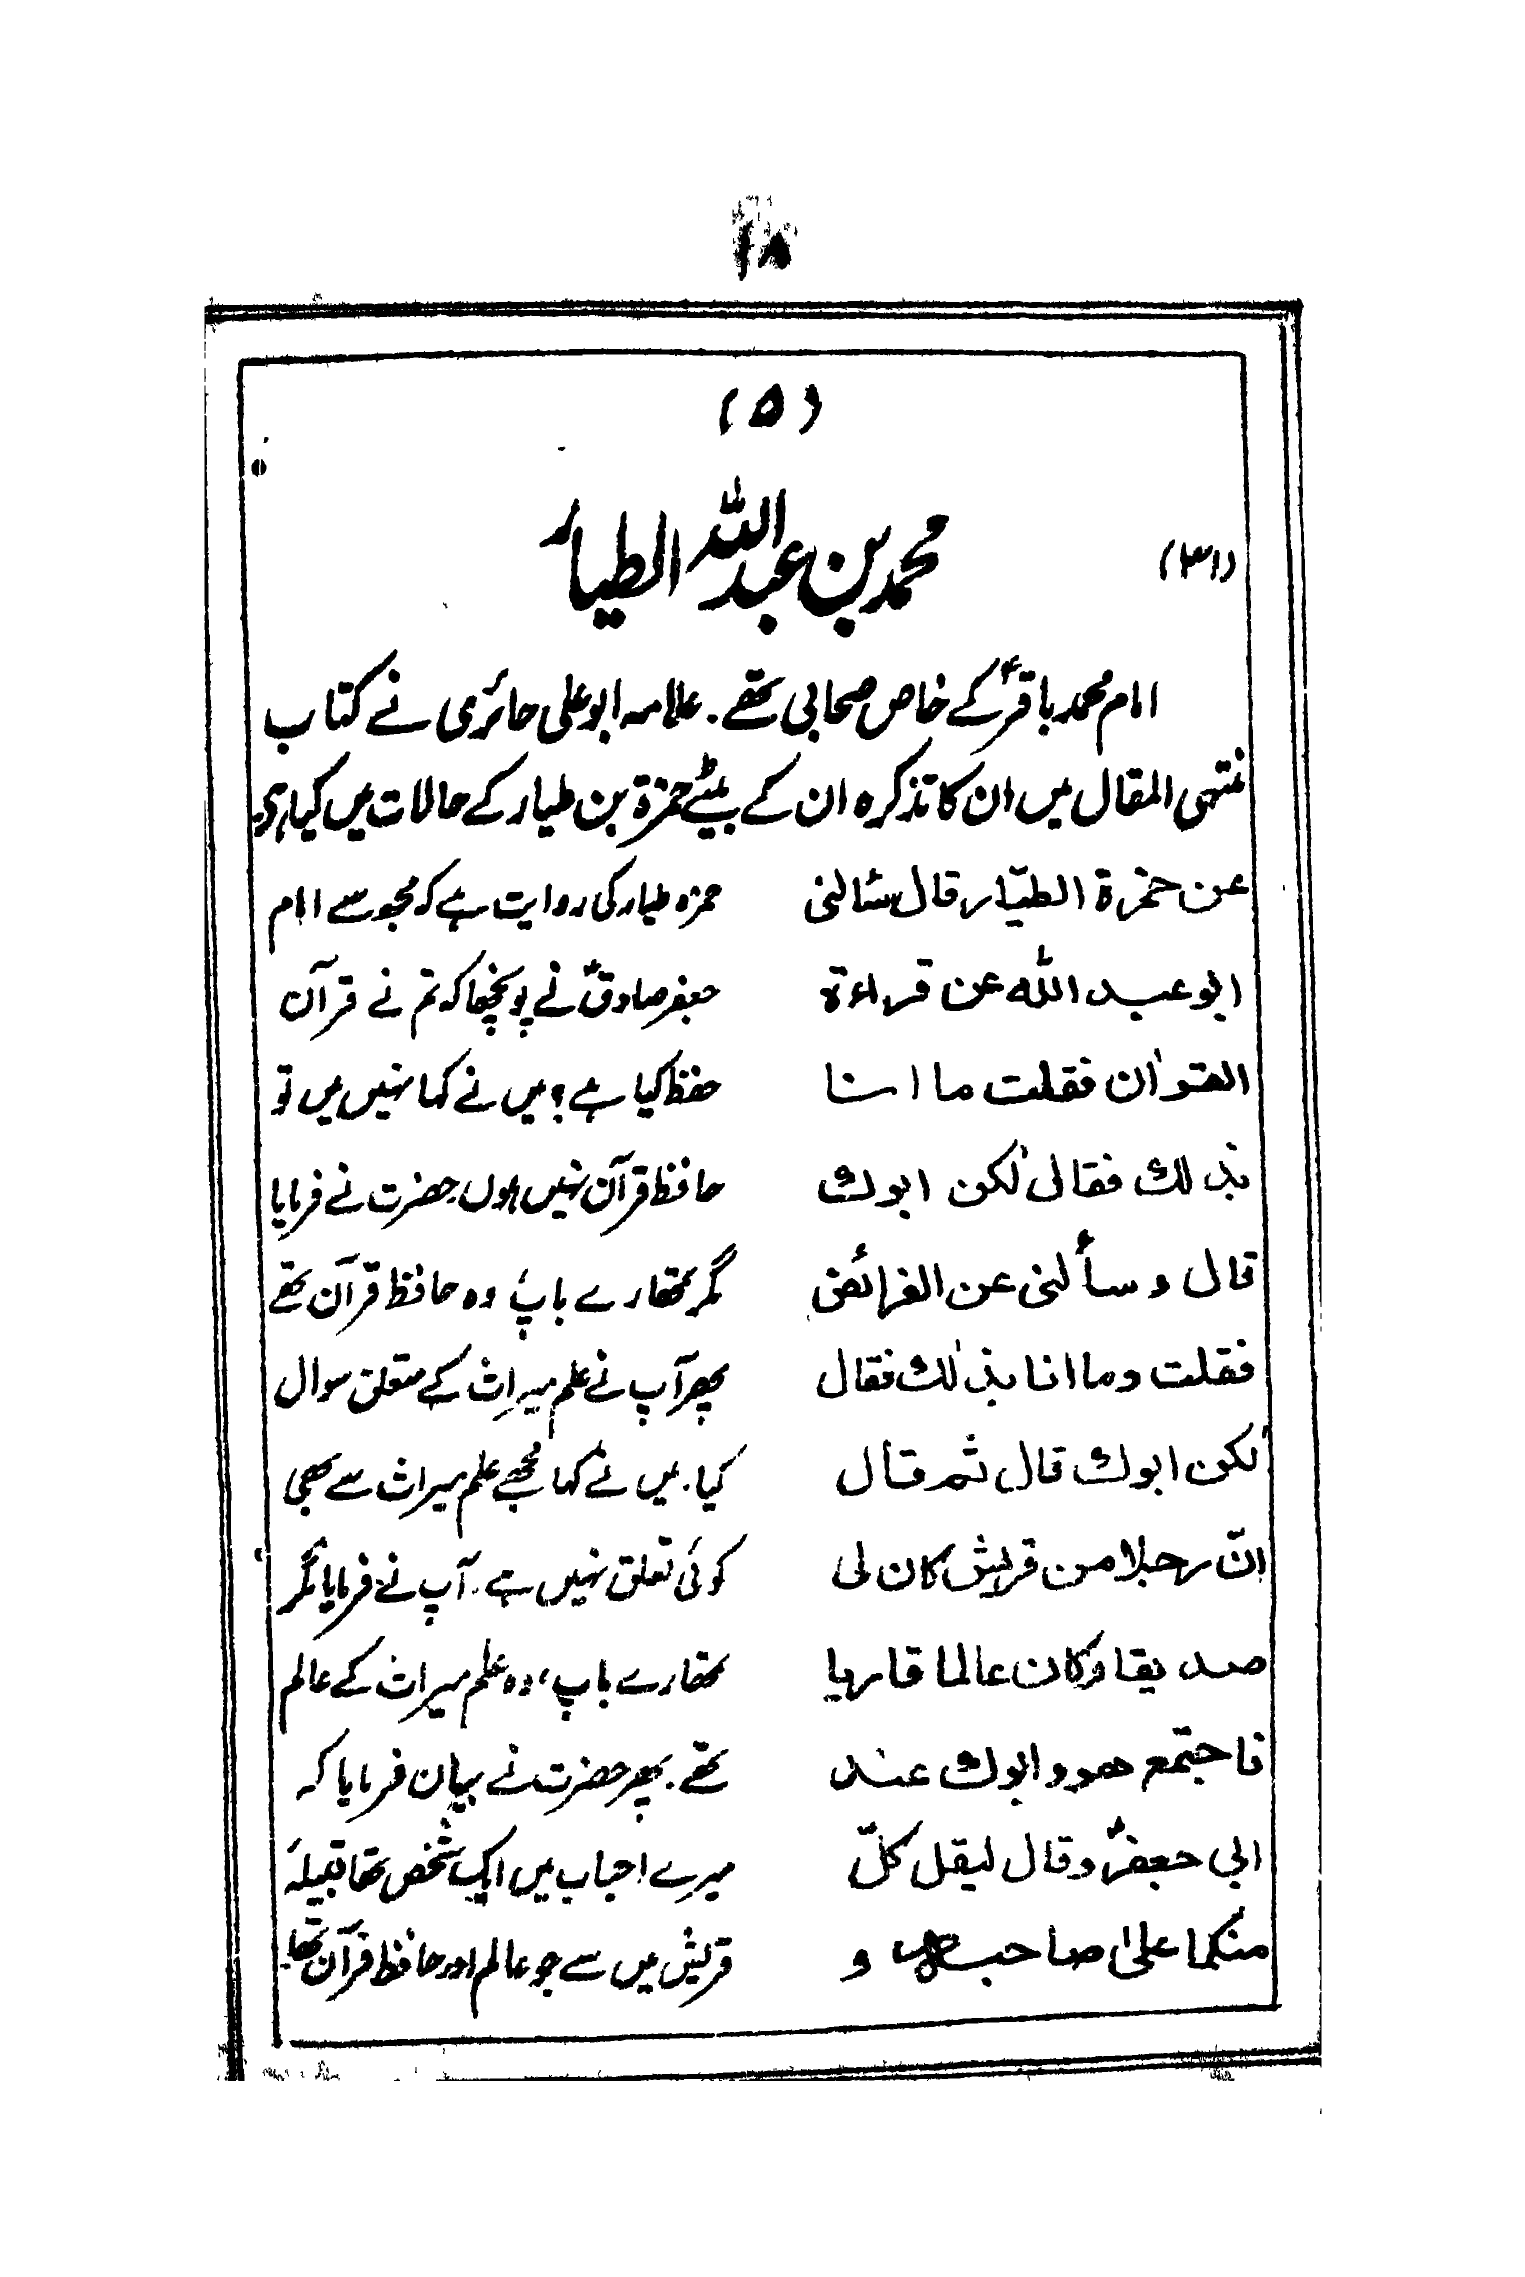 ۱۸
(۵)
(۳۱)
محمد بن عبداللہ الطیار
امام محمد باقرؑ کے خاص صحابی تھے۔ علامہ ابو علی حائری نے کتاب
منتہی المقال میں ان کا تذکرہ ان کے بیٹے حمزۃ بن طیار کے حالات میں کیا ہے۔
عن حمزة الطيّار قال سألنی
ابو عبد اللہ عن قراءة
القرآن فقلت ما انا
بذلك فقال لكن ابوك
قال و سألنی عن الفرائض
فقلت وما انا بذلك فقال
لكن ابوك قال ثم قال
انّ رجلا من قریش كان لی
صدیقا وكان عالما قاریا
فاجتمع هو و ابوك عند
ابی جعفرؑ وقال لیقل كلّ
منكما علیٰ صاحبه و
حمزہ طیار کی روایت ہے کہ مجھ سے امام
جعفر صادقؑ نے پوچھا کہ تم نے قرآن
حفظ کیا ہے؟ میں نے کہا نہیں میں تو
حافظ قرآن نہیں ہوں۔ حضرت نے فرمایا
مگر تمھارے باپ، وہ حافظ قرآن تھے
پھر آپ نے علم میراث کے متعلق سوال
کیا۔ میں نے کہا مجھے علم میراث سے بھی
کوئی تعلق نہیں ہے۔ آپ نے فرمایا مگر
تمھارے باپ، وہ علم میراث کے عالم
تھے۔ پھر حضرت نے بیان فرمایا کہ
میرے احباب میں ایک شخص تھا قبیلۂ
قریش میں سے جو عالم اور حافظ قرآن تھا۔